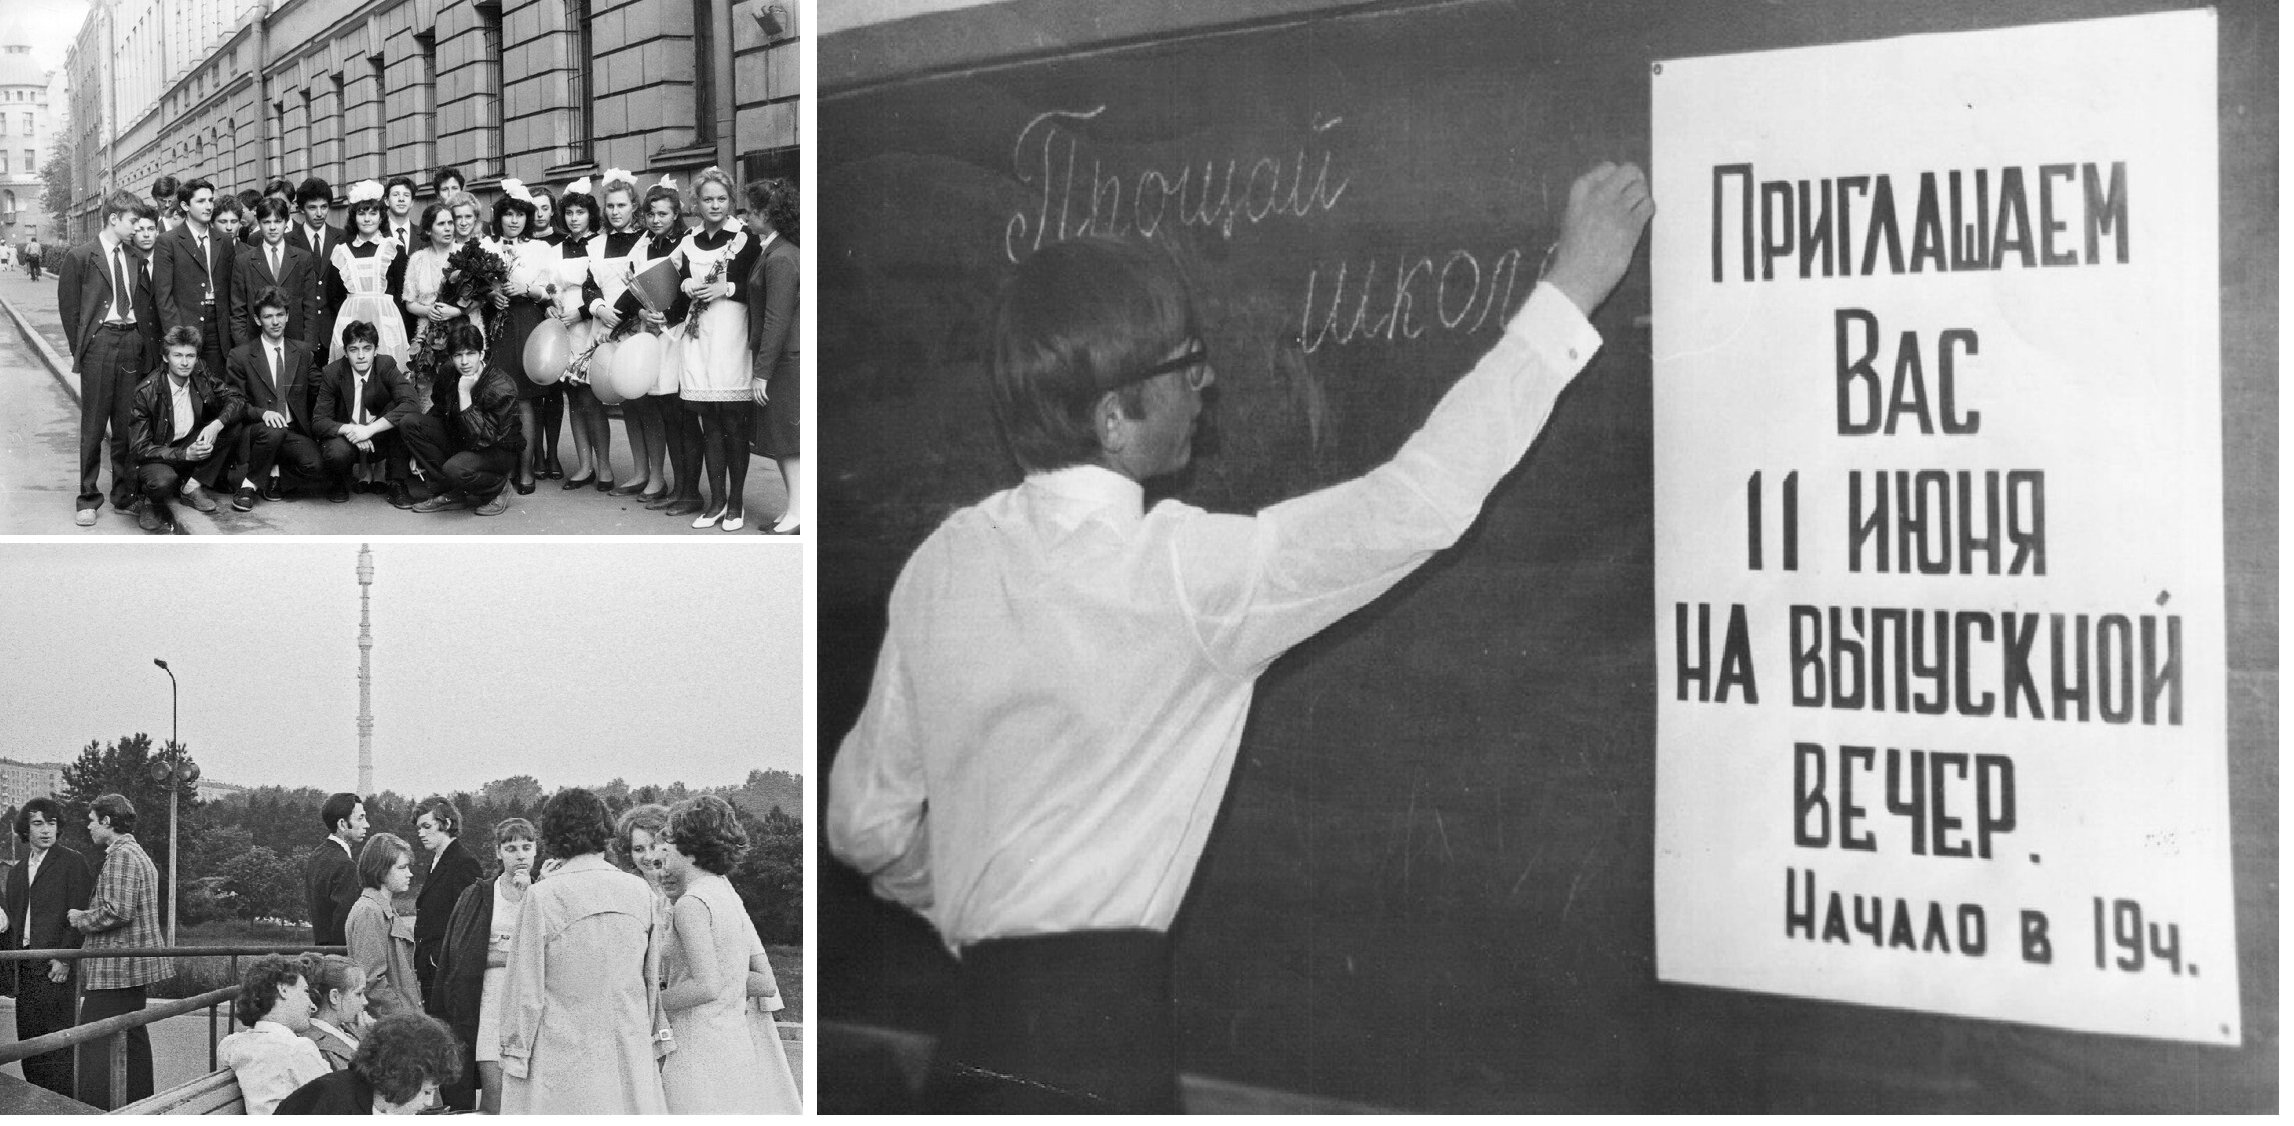 Прощай
школа
Приглашаем
Вас
11 июня
на выпускной
вечер.
Начало в 19ч.